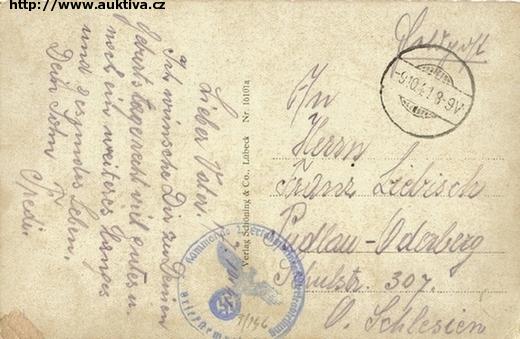 www.auktiva.cz
Lieber Vater!
Ich wünsche Dir zu Deinem
Geburtstage recht viel Gutes u.
noch ein weiteres langes
und gesundes Leben.
Dein Sohn
Verlag Schöning & Co., Lübeck Nr. 16101a
Feldpost
-9.10.41.8-9V
An
Herrn
Franz Liebisch
Pudlau-Oderberg
Schulstr. 307.
O. Schlesien